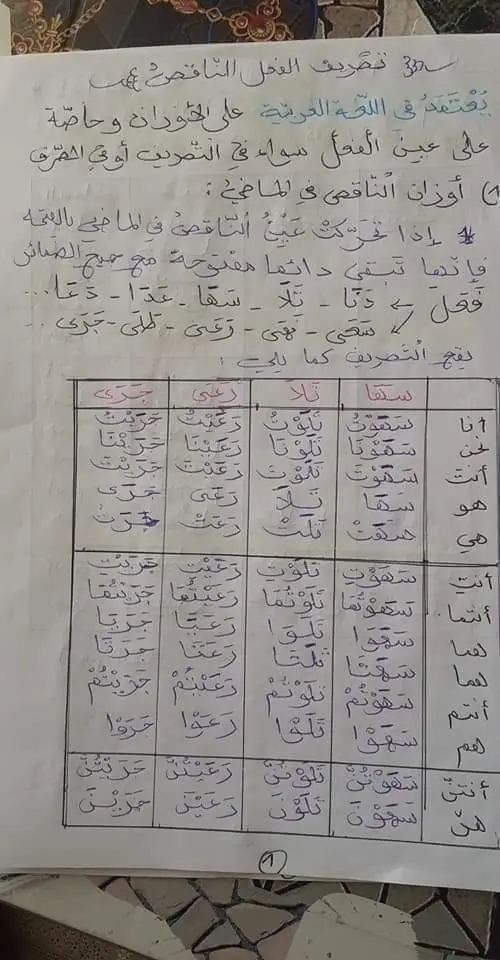 تصريف الفعل الناقص
يُعْتَمَدُ في اللغة العربية على الأوزان وخاصّة
على عين الفعل سواء في التصريف أو في الصرف
1) أوزان الناقص في الماضي :
* إذا تحرّكتْ عَيْنُ النّاقص في الماضي بالفتحة
فإنّها تبقى دائما مفتوحة مع جميع الضمائر
فَعَلَ ← دَنَا - تَلَا - سَهَا - عَدَا - دَعَا ...
← سَعَى - نَهَى - رَعَى - طَلَى - جَرَى ...
يقع التصريف كما يلي :
سَهَا تَلَا رَعَى جَرَى
أنا سَهَوْتُ تَلَوْتُ رَعَيْتُ جَرَيْتُ
نحن سَهَوْنَا تَلَوْنَا رَعَيْنَا جَرَيْنَا
أنتَ سَهَوْتَ تَلَوْتَ رَعَيْتَ جَرَيْتَ
هو سَهَا تَلَا رَعَى جَرَى
هي سَهَتْ تَلَتْ رَعَتْ جَرَتْ
أنتِ سَهَوْتِ تَلَوْتِ رَعَيْتِ جَرَيْتِ
أنتما سَهَوْتُمَا تَلَوْتُمَا رَعَيْتُمَا جَرَيْتُمَا
هما سَهَوَا تَلَوَا رَعَيَا جَرَيَا
هما سَهَتَا تَلَتَا رَعَتَا جَرَتَا
أنتم سَهَوْتُمْ تَلَوْتُمْ رَعَيْتُمْ جَرَيْتُمْ
هم سَهَوْا تَلَوْا رَعَوْا جَرَوْا
أنتنّ سَهَوْتُنَّ تَلَوْتُنَّ رَعَيْتُنَّ جَرَيْتُنَّ
هنّ سَهَوْنَ تَلَوْنَ رَعَيْنَ جَرَيْنَ
1